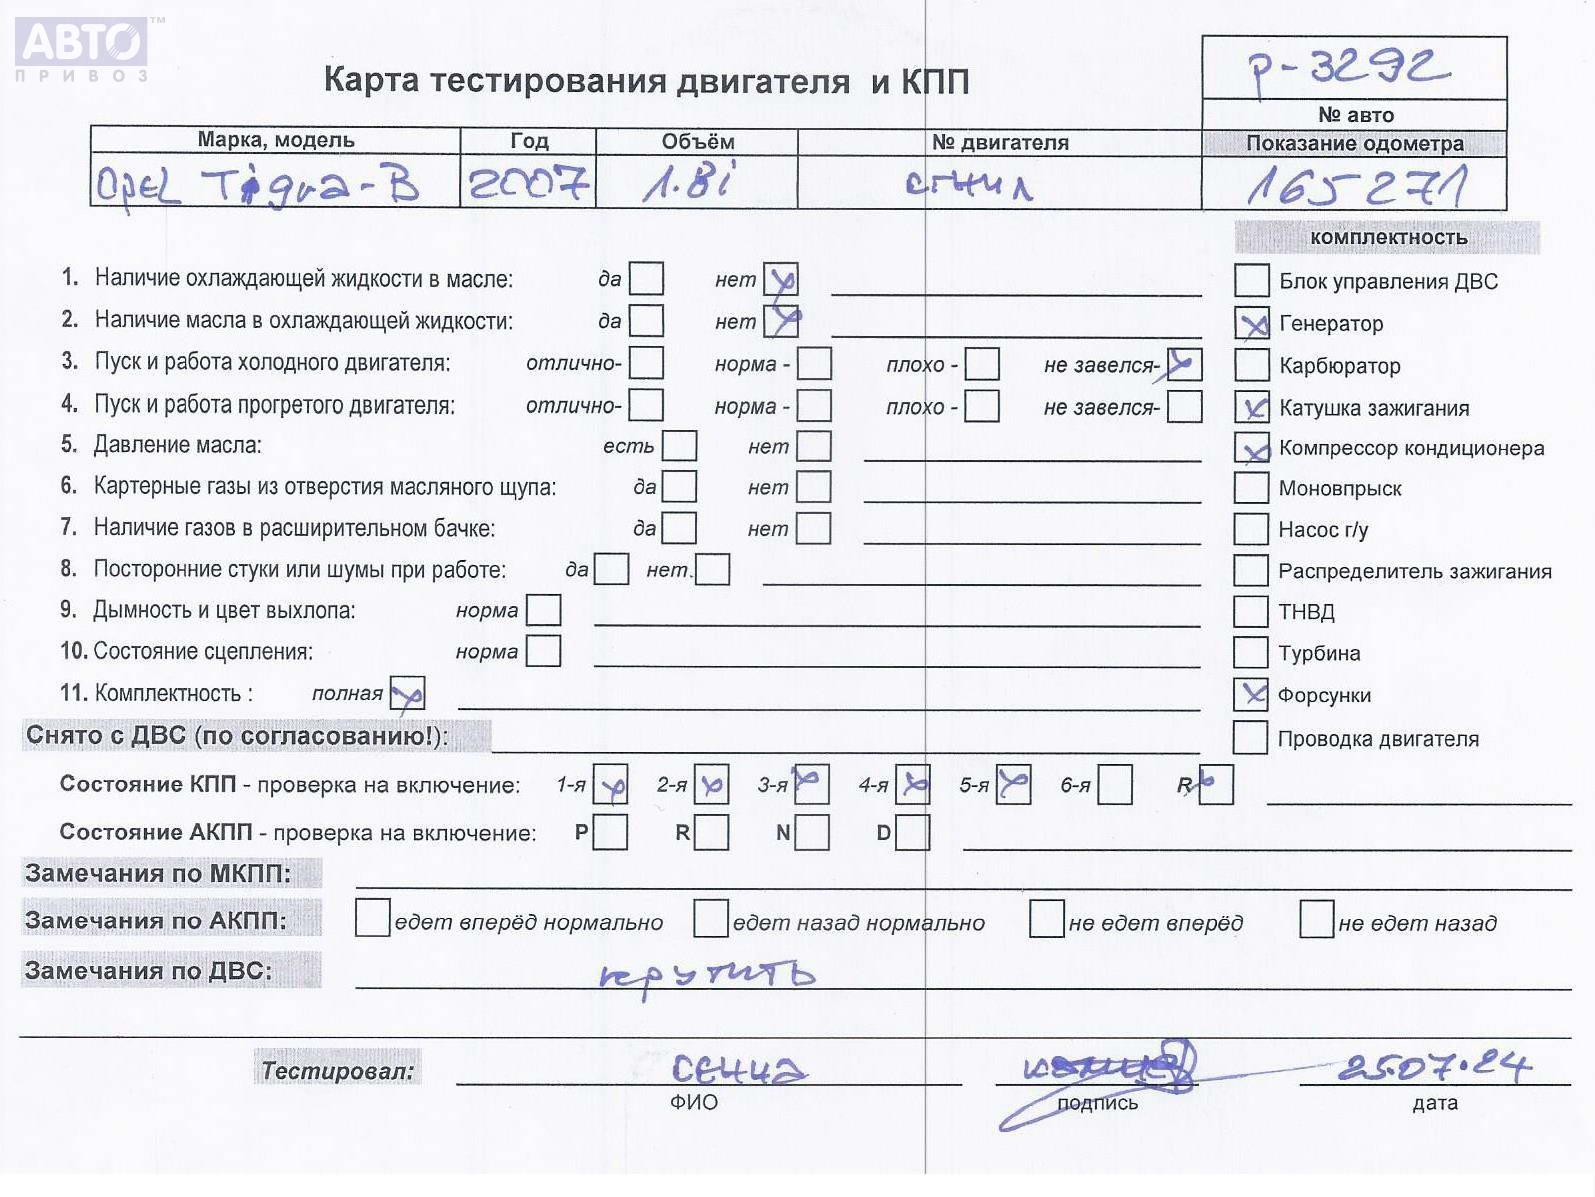 АВТО™
ПРИВОЗ
р-3292
Карта тестирования двигателя и КПП
№ авто
Марка, модель Год Объём № двигателя Показание одометра
Opel Tigra-B 2007 1.8i сгнил 165271
комплектность
1. Наличие охлаждающей жидкости в масле: да нет Блок управления ДВС
2. Наличие масла в охлаждающей жидкости: да нет Генератор
3. Пуск и работа холодного двигателя: отлично- норма - плохо - не завелся- Карбюратор
4. Пуск и работа прогретого двигателя: отлично- норма - плохо - не завелся- Катушка зажигания
5. Давление масла: есть нет Компрессор кондиционера
6. Картерные газы из отверстия масляного щупа: да нет Моновпрыск
7. Наличие газов в расширительном бачке: да нет Насос г/у
8. Посторонние стуки или шумы при работе: да нет. Распределитель зажигания
9. Дымность и цвет выхлопа: норма ТНВД
10. Состояние сцепления: норма Турбина
11. Комплектность : полная Форсунки
Снято с ДВС (по согласованию!): Проводка двигателя
Состояние КПП - проверка на включение: 1-я 2-я 3-я 4-я 5-я 6-я R
Состояние АКПП - проверка на включение: P R N D
Замечания по МКПП:
Замечания по АКПП: едет вперёд нормально едет назад нормально не едет вперёд не едет назад
Замечания по ДВС: крутить
Тестировал: 25.07.24
ФИО подпись дата